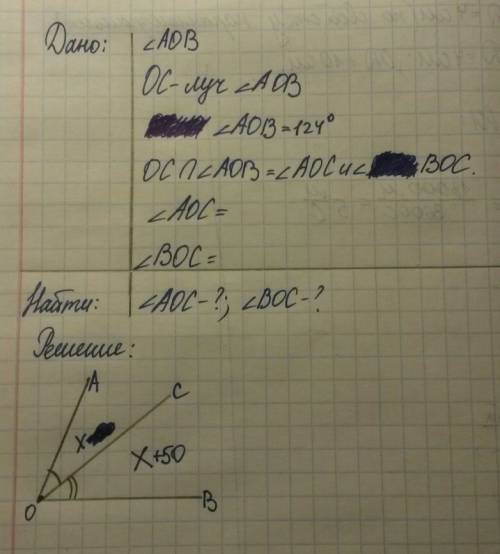 Дано: ∠AOB
OC-луч ∠AOB
∠AOB=124°
OC∩∠AOB=∠AOC и ∠BOC.
∠AOC=
∠BOC=
Найти: ∠AOC-?; ∠BOC-?
Решение:
A
C
x
x+50
O
B